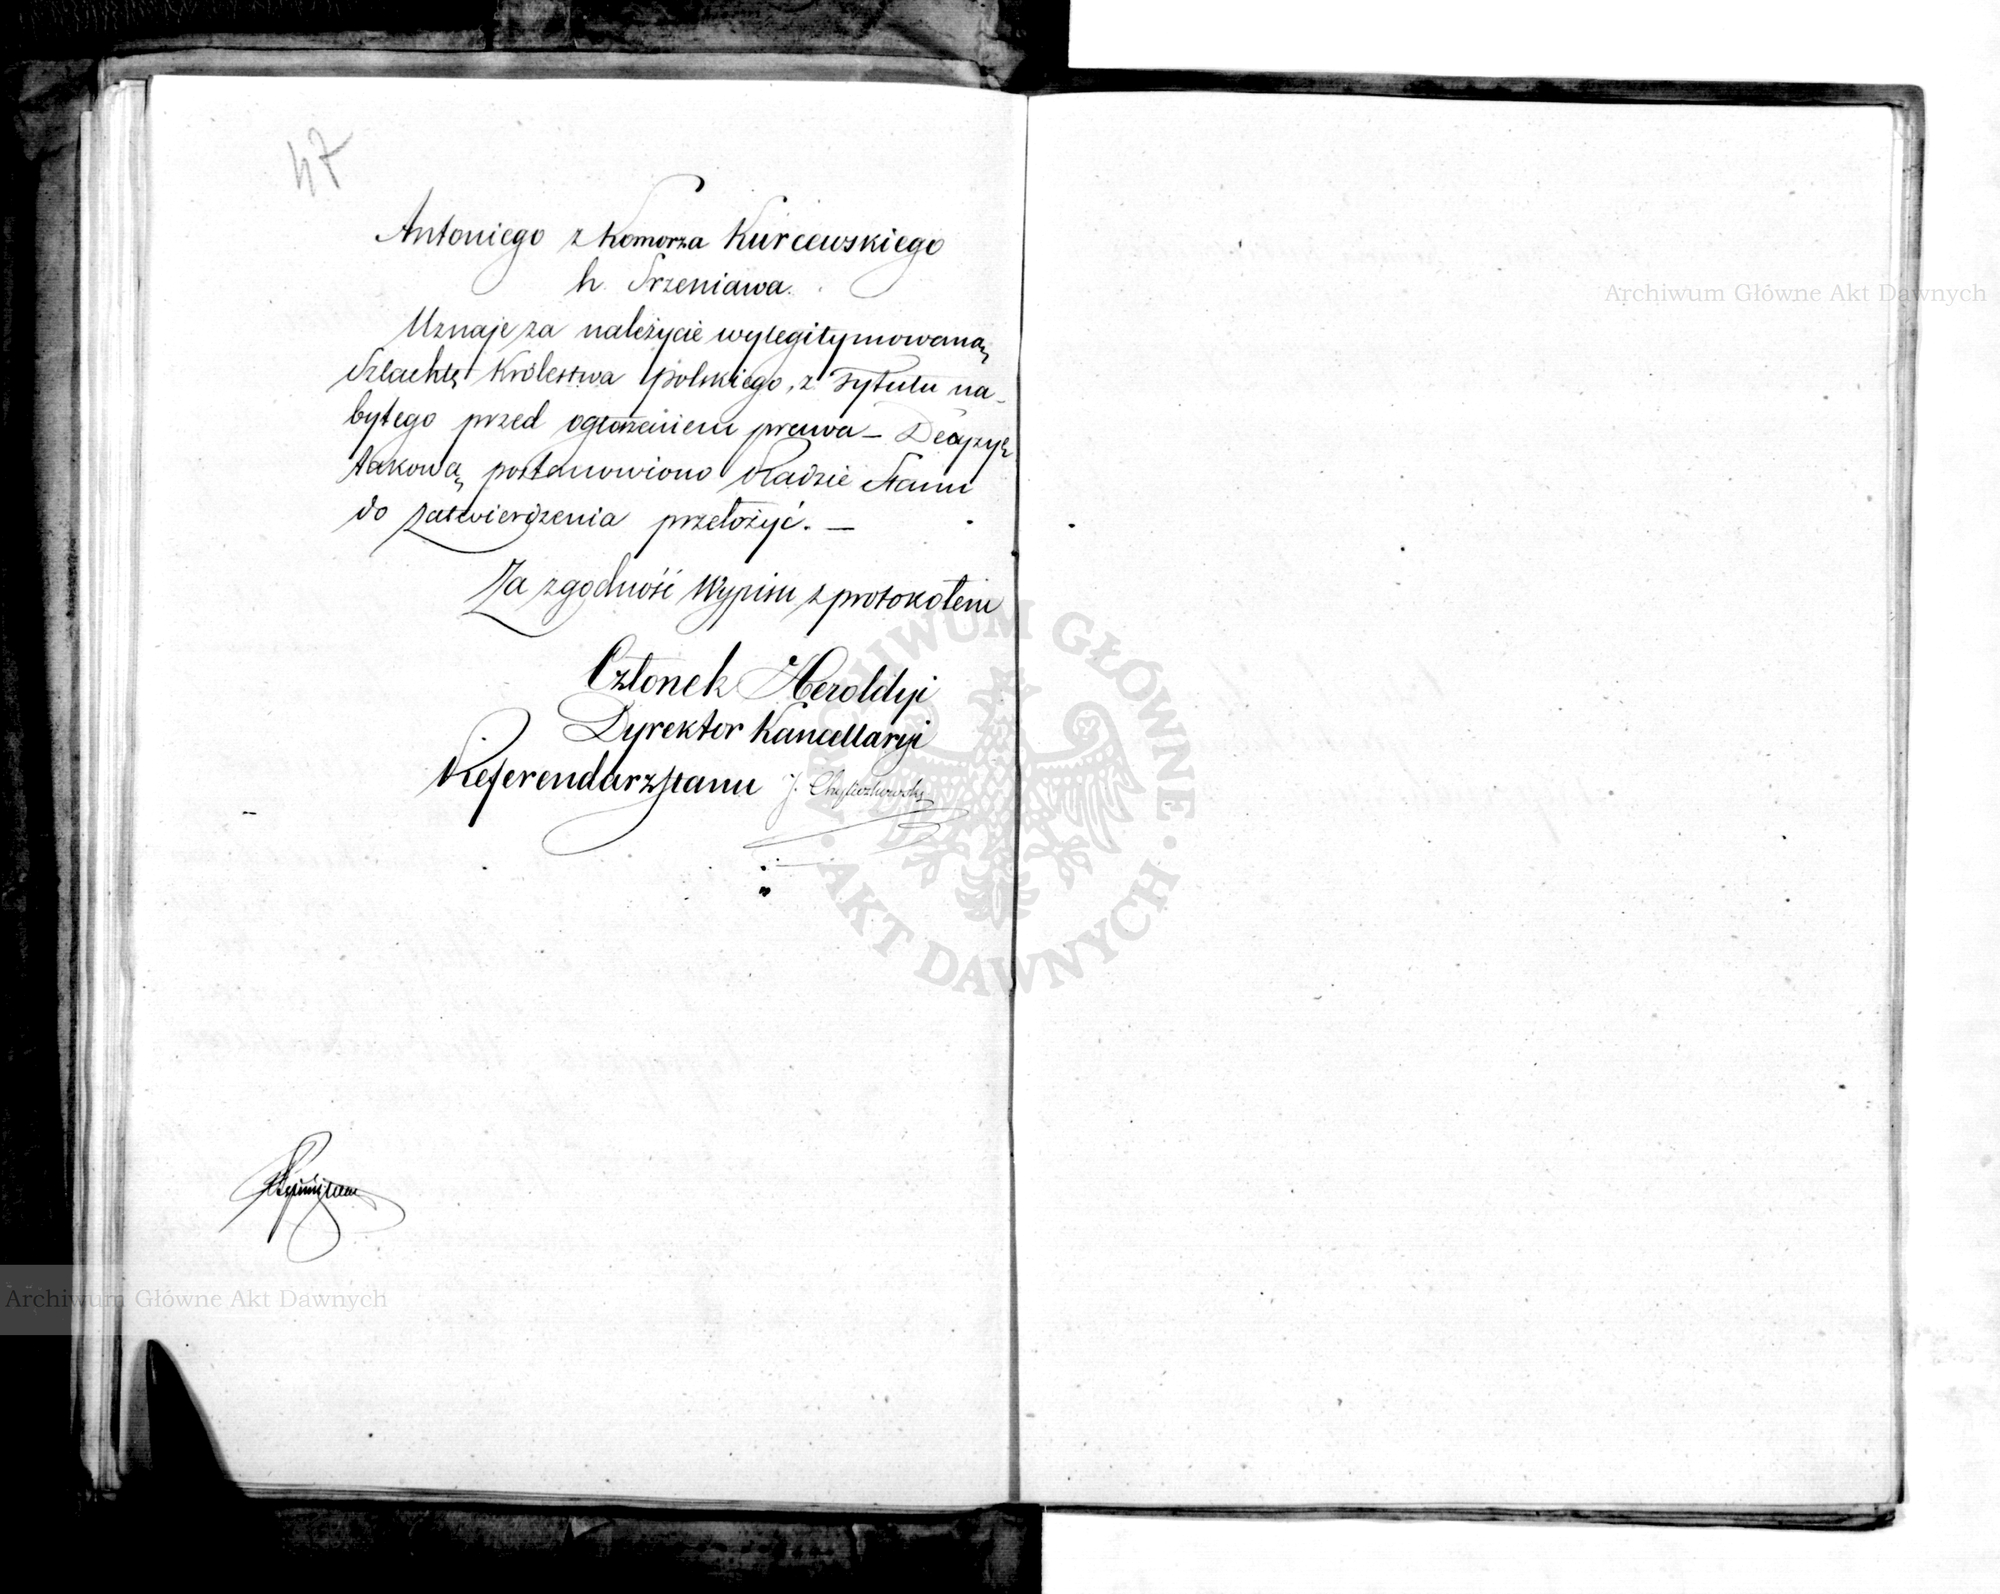 47
Antoniego z Komorza Kurcewskiego
h. Srzeniawa.
Uznaje za należycie wylegitymowaną
Szlachtę Królestwa Polskiego, z Tytułu na-
bytego przed ogłoszeniem prawa – Decyzyę
takową postanowiono Radzie Stanu
do zatwierdzenia przełożyć. —
Za zgodność Wypisu z protokołem
Członek Heroldyi
Dyrektor Kancellaryi
Referendarz Stanu J. Chyliczkowski
Archiwum Główne Akt Dawnych
Archiwum Główne Akt Dawnych
ARCHIWUM GŁÓWNE AKT DAWNYCH